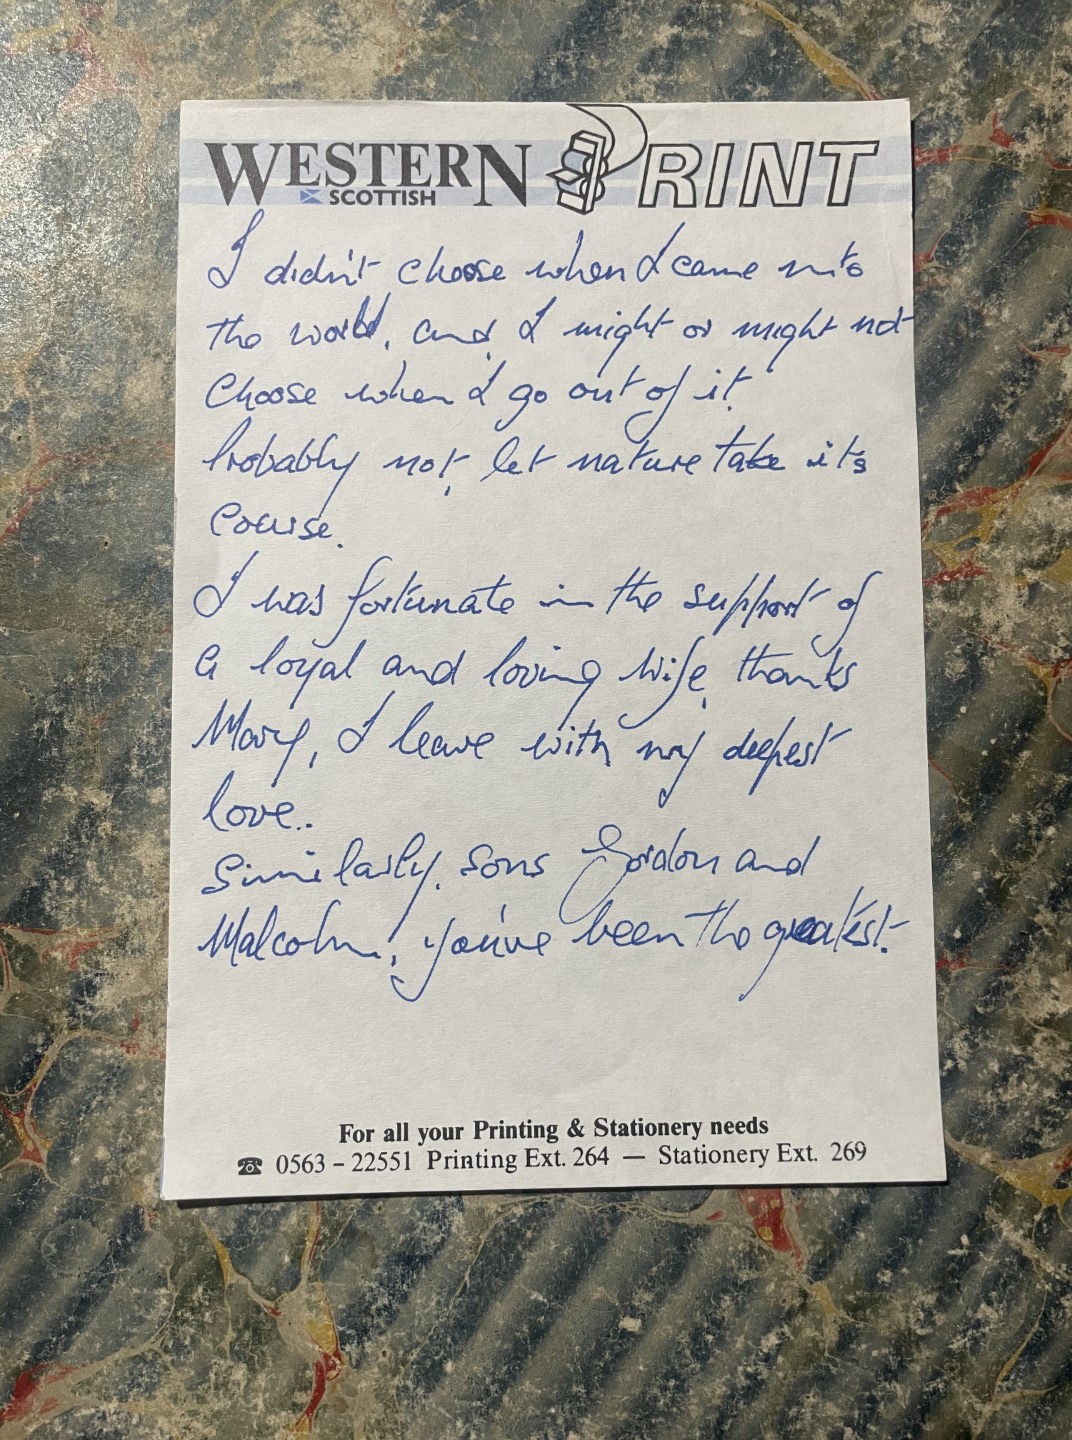 WESTERN PRINT
SCOTTISH
I didn't choose when I came into
the world, and, I might or might not
choose when I go out of it.
Probably not, let nature take its
course.
I was fortunate in the support of
a loyal and loving wife, thanks
Mary, I leave with my deepest
love..
Similarly, sons Gordon and
Malcolm, you've been the greatest.
For all your Printing & Stationery needs
☎ 0563 - 22551 Printing Ext. 264 — Stationery Ext. 269